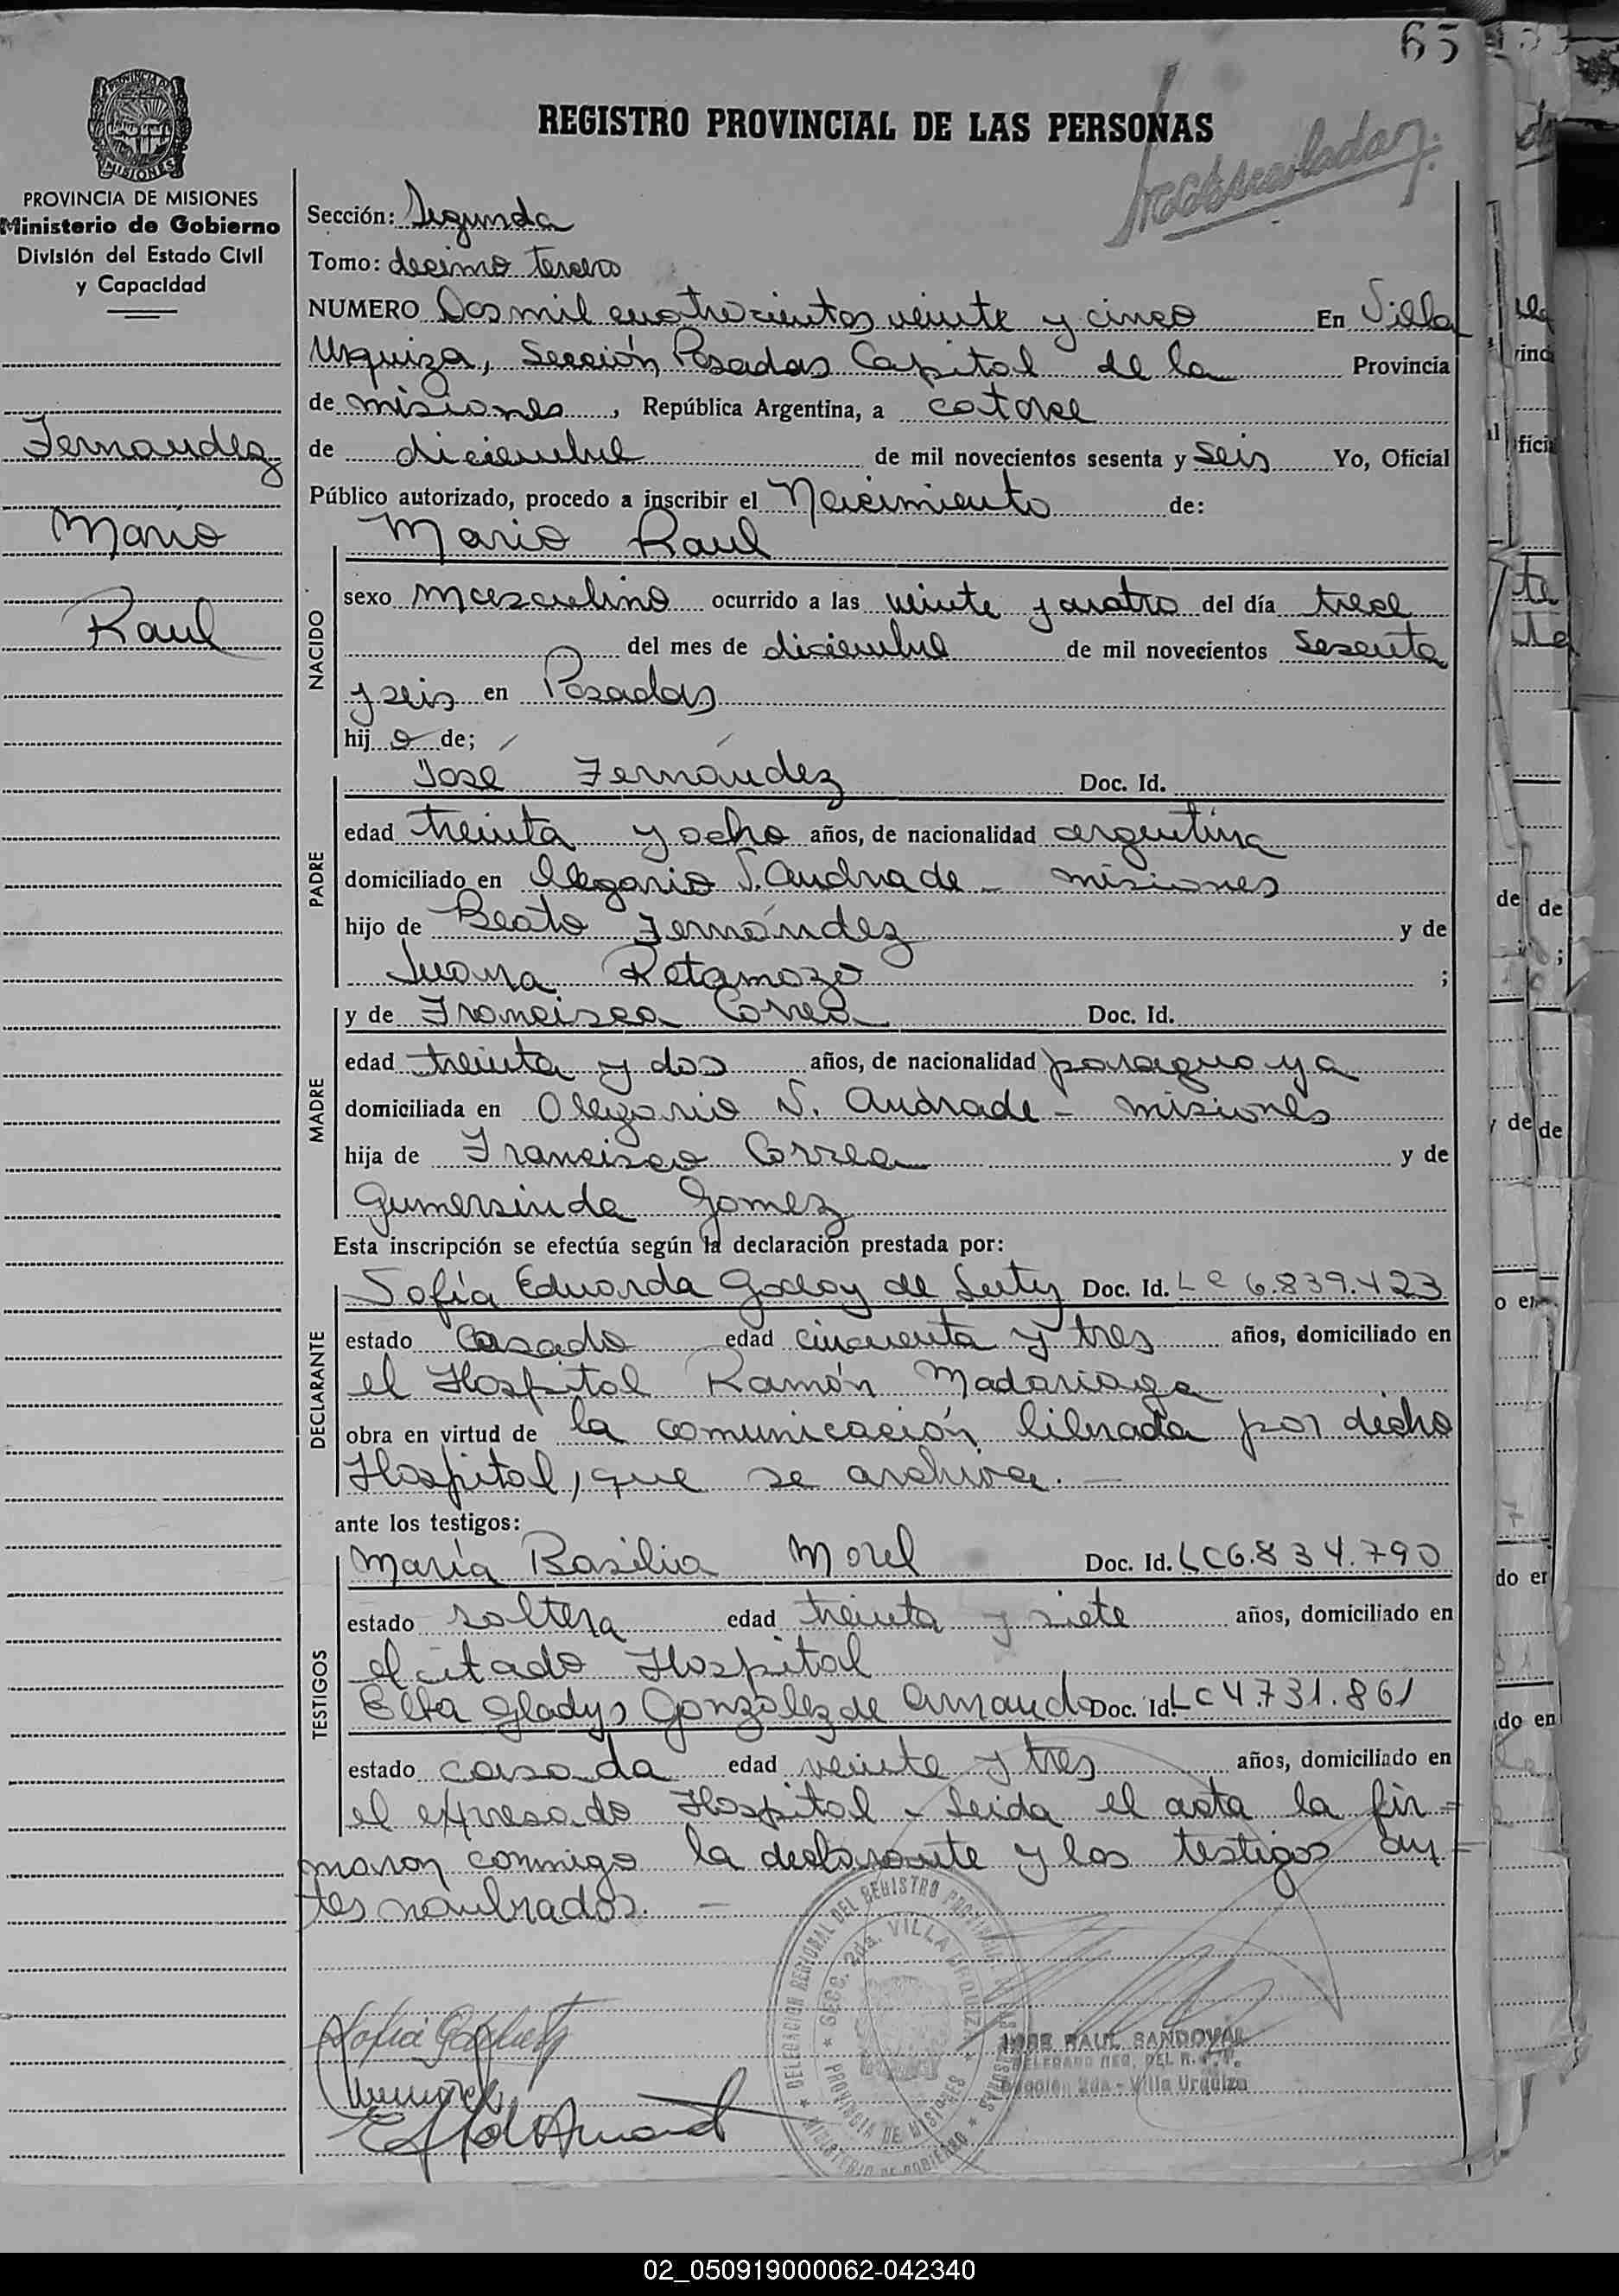 65
REGISTRO PROVINCIAL DE LAS PERSONAS
MISIONES
PROVINCIA DE MISIONES
Ministerio de Gobierno
División del Estado Civil
y Capacidad
Fernandez
Mario
Raul
Sección: Segunda
Tomo: decimo tercero
NUMERO Dos mil cuatrocientos veinte y cinco En Villa
Urquiza, Sección Posadas Capital de la Provincia
de misiones, República Argentina, a catorce
de diciembre de mil novecientos sesenta y seis Yo, Oficial
Público autorizado, procedo a inscribir el Nacimiento de:
NACIDO
Mario Raul
sexo masculino ocurrido a las veinte y cuatro del día trece
del mes de diciembre de mil novecientos sesenta
y seis en Posadas
hijo de;
PADRE
José Fernández Doc. Id.
edad treinta y ocho años, de nacionalidad argentina
domiciliado en Olegario V. Andrade - misiones
hijo de Beato Fernández y de
Juana Retamozo ;
MADRE
y de Francisca Correa Doc. Id.
edad treinta y dos años, de nacionalidad paraguaya
domiciliada en Olegario V. Andrade - misiones
hija de Francisco Correa y de
Gumersinda Gomez
Esta inscripción se efectúa según la declaración prestada por:
DECLARANTE
Sofía Eduarda Godoy de Doc. Id. LC 6.839.423
estado Casado edad cincuenta y tres años, domiciliado en
el Hospital Ramón Madariaga
obra en virtud de la comunicación librada por dicho
Hospital, que se archiva. —
ante los testigos:
TESTIGOS
María Basilia Morel Doc. Id. LC 6.834.790
estado soltera edad treinta y siete años, domiciliado en
el citado Hospital
Elba Gladys Gonzalez de Armando Doc. Id. LC 4.731.861
estado casada edad veinte y tres años, domiciliado en
el expresado Hospital - Leida el acta la fir=
maron conmigo la declarante y los testigos an=
tes nombrados. —
DELEGACION REGIONAL DEL REGISTRO PROVINCIAL DE LAS PERSONAS
SECC. 2da. VILLA URQUIZA
PROVINCIA DE MISIONES
MINISTERIO DE GOBIERNO
JOSE RAUL SANDOVAL
DELEGADO REG. DEL R. P. P.
Sección 2da - Villa Urquiza
02_050919000062-042340